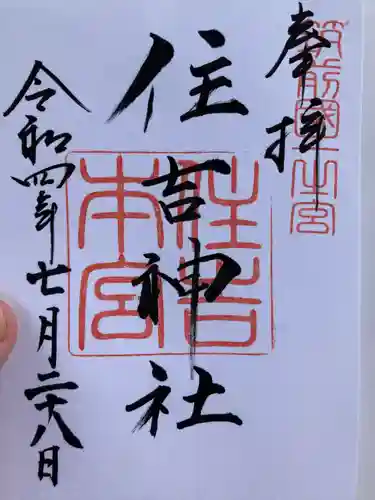 奉拝
筑前國一之宮
住吉神社
住吉本宮
令和四年七月二十八日